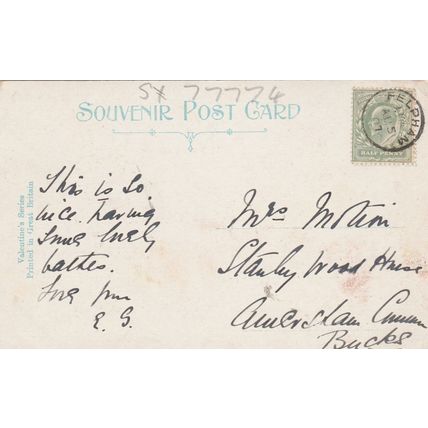 SX 77774
SOUVENIR POST CARD
FELPHAM
HALF PENNY
Valentine's Series
Printed in Great Britain
This is so
nice. having
some lovely
bathes.
Love from
E. G.
Mrs Motion
Stanley Wood House
Amersham Common
Bucks